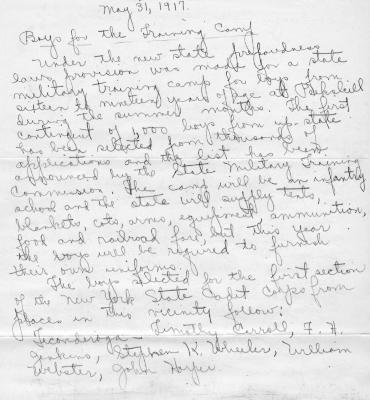 May 31, 1917.
Boys for the Training Camp
Under the new state preparedness
laws provision was made for a state
military training camp for boys from
sixteen to nineteen years of age at Peekskill
during the summer months. The first
contingent of 3,000 boys from up-state
has been selected from thousands of
applications and the list has been
approved by the State Military Training
Commission. The camp will be an infantry
school and the state will supply tents,
blankets, cots, arms, equipment, ammunition,
food and railroad fare, but this year
the boys will be required to furnish
their own uniforms.
The boys selected for the first section
of the New York State Cadet Corps from
places in this vicinity follow:
Ticonderoga - Timothy Carroll, F. H.
Jenkins, Stephen K. Wheeler, William
Webster, John